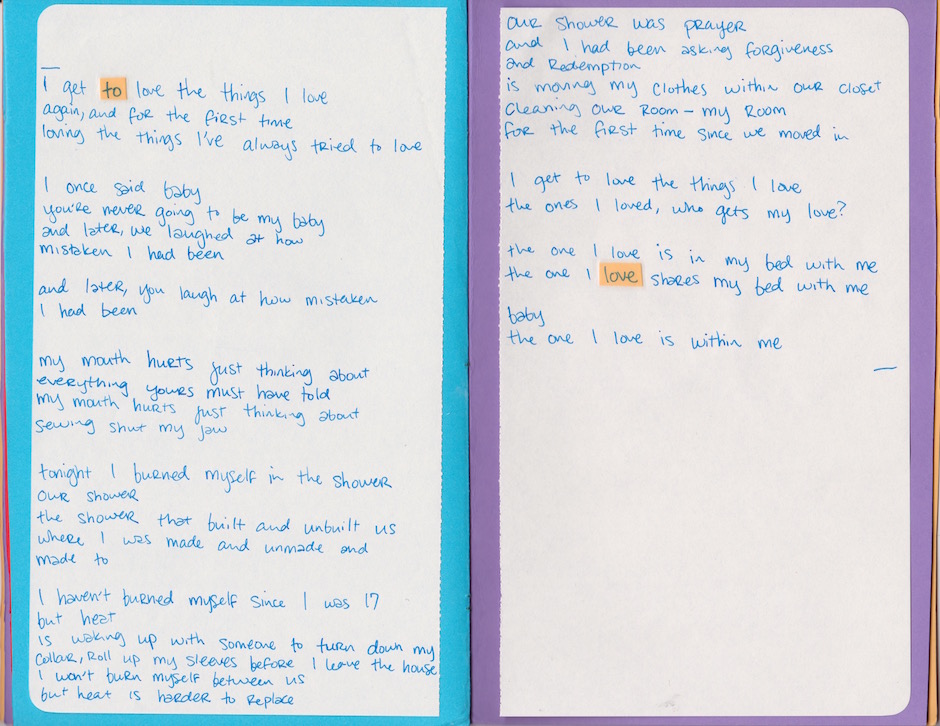 I get to love the things I love
again, and for the first time
loving the things I've always tried to love
I once said baby
you're never going to be my baby
and later, we laughed at how
mistaken I had been
and later, you laugh at how mistaken
I had been
my mouth hurts just thinking about
everything yours must have told
my mouth hurts just thinking about
sewing shut my jaw
tonight I burned myself in the shower
our shower
the shower that built and unbuilt us
where I was made and unmade and
made to
I haven't burned myself since I was 17
but heat
is waking up with someone to turn down my
collar, roll up my sleeves before I leave the house
I won't burn myself between us
but heat is harder to replace
our shower was prayer
and I had been asking forgiveness
and Redemption
is moving my clothes within our closet
cleaning our room - my room
for the first time since we moved in
I get to love the things I love
the ones I loved, who gets my love?
the one I love is in my bed with me
the one I love shares my bed with me
baby
the one I love is within me